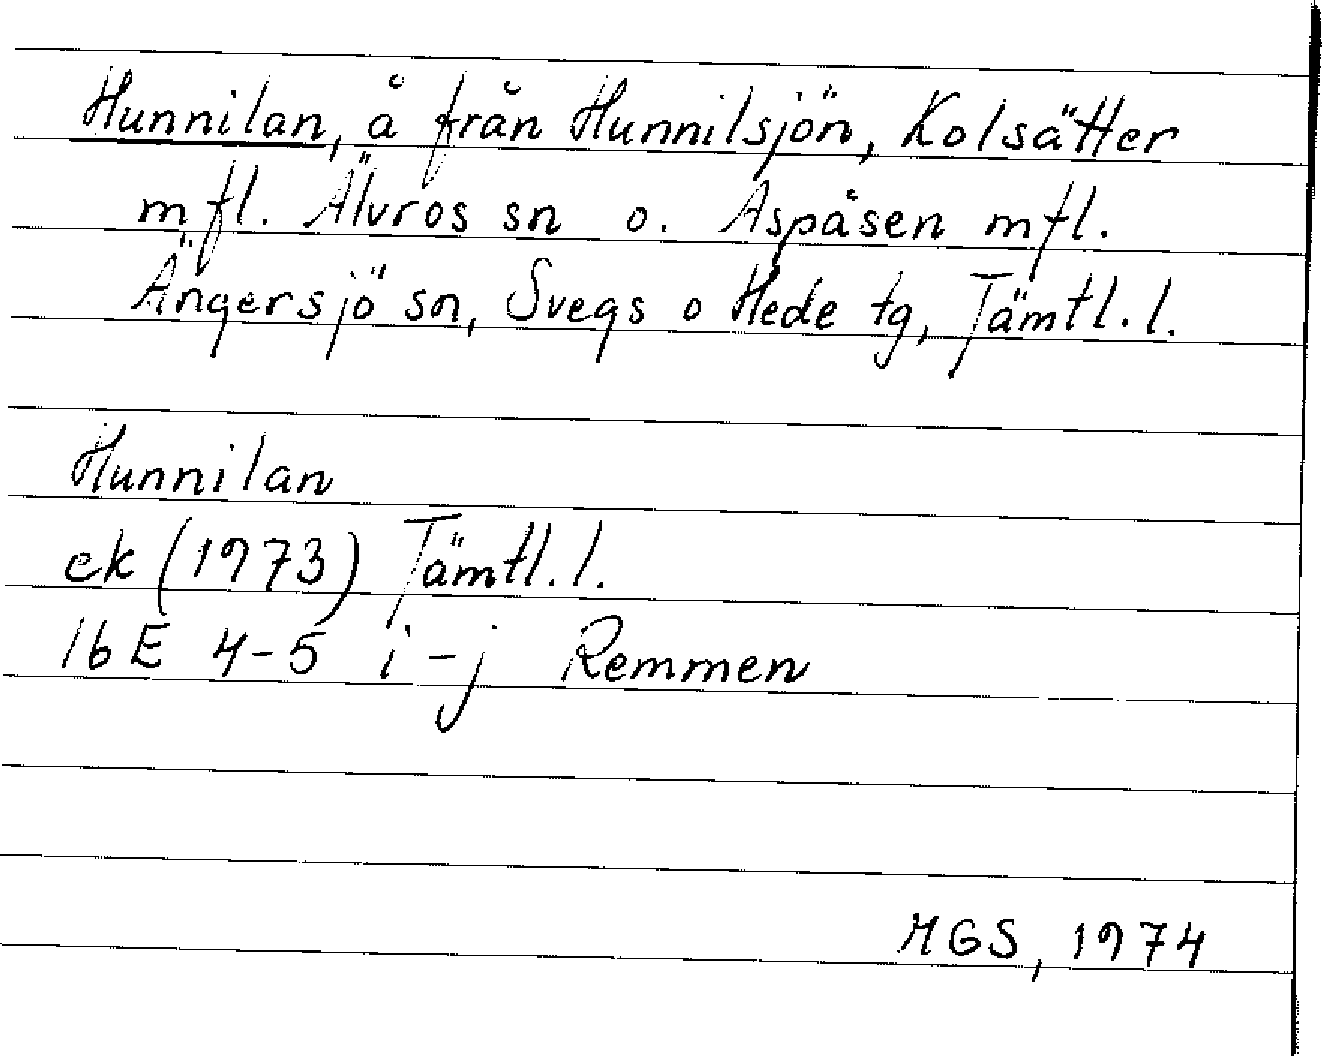 Hunnilan, å från Hunnilsjön, Kolsätter
m fl. Älvros sn o. Aspåsen m fl.
Ängersjö sn, Svegs o Hede tg, Jämtl. l.
Hunnilan
ek (1973) Jämtl. l.
16E 4-5 i-j Remmen
MGS, 1974